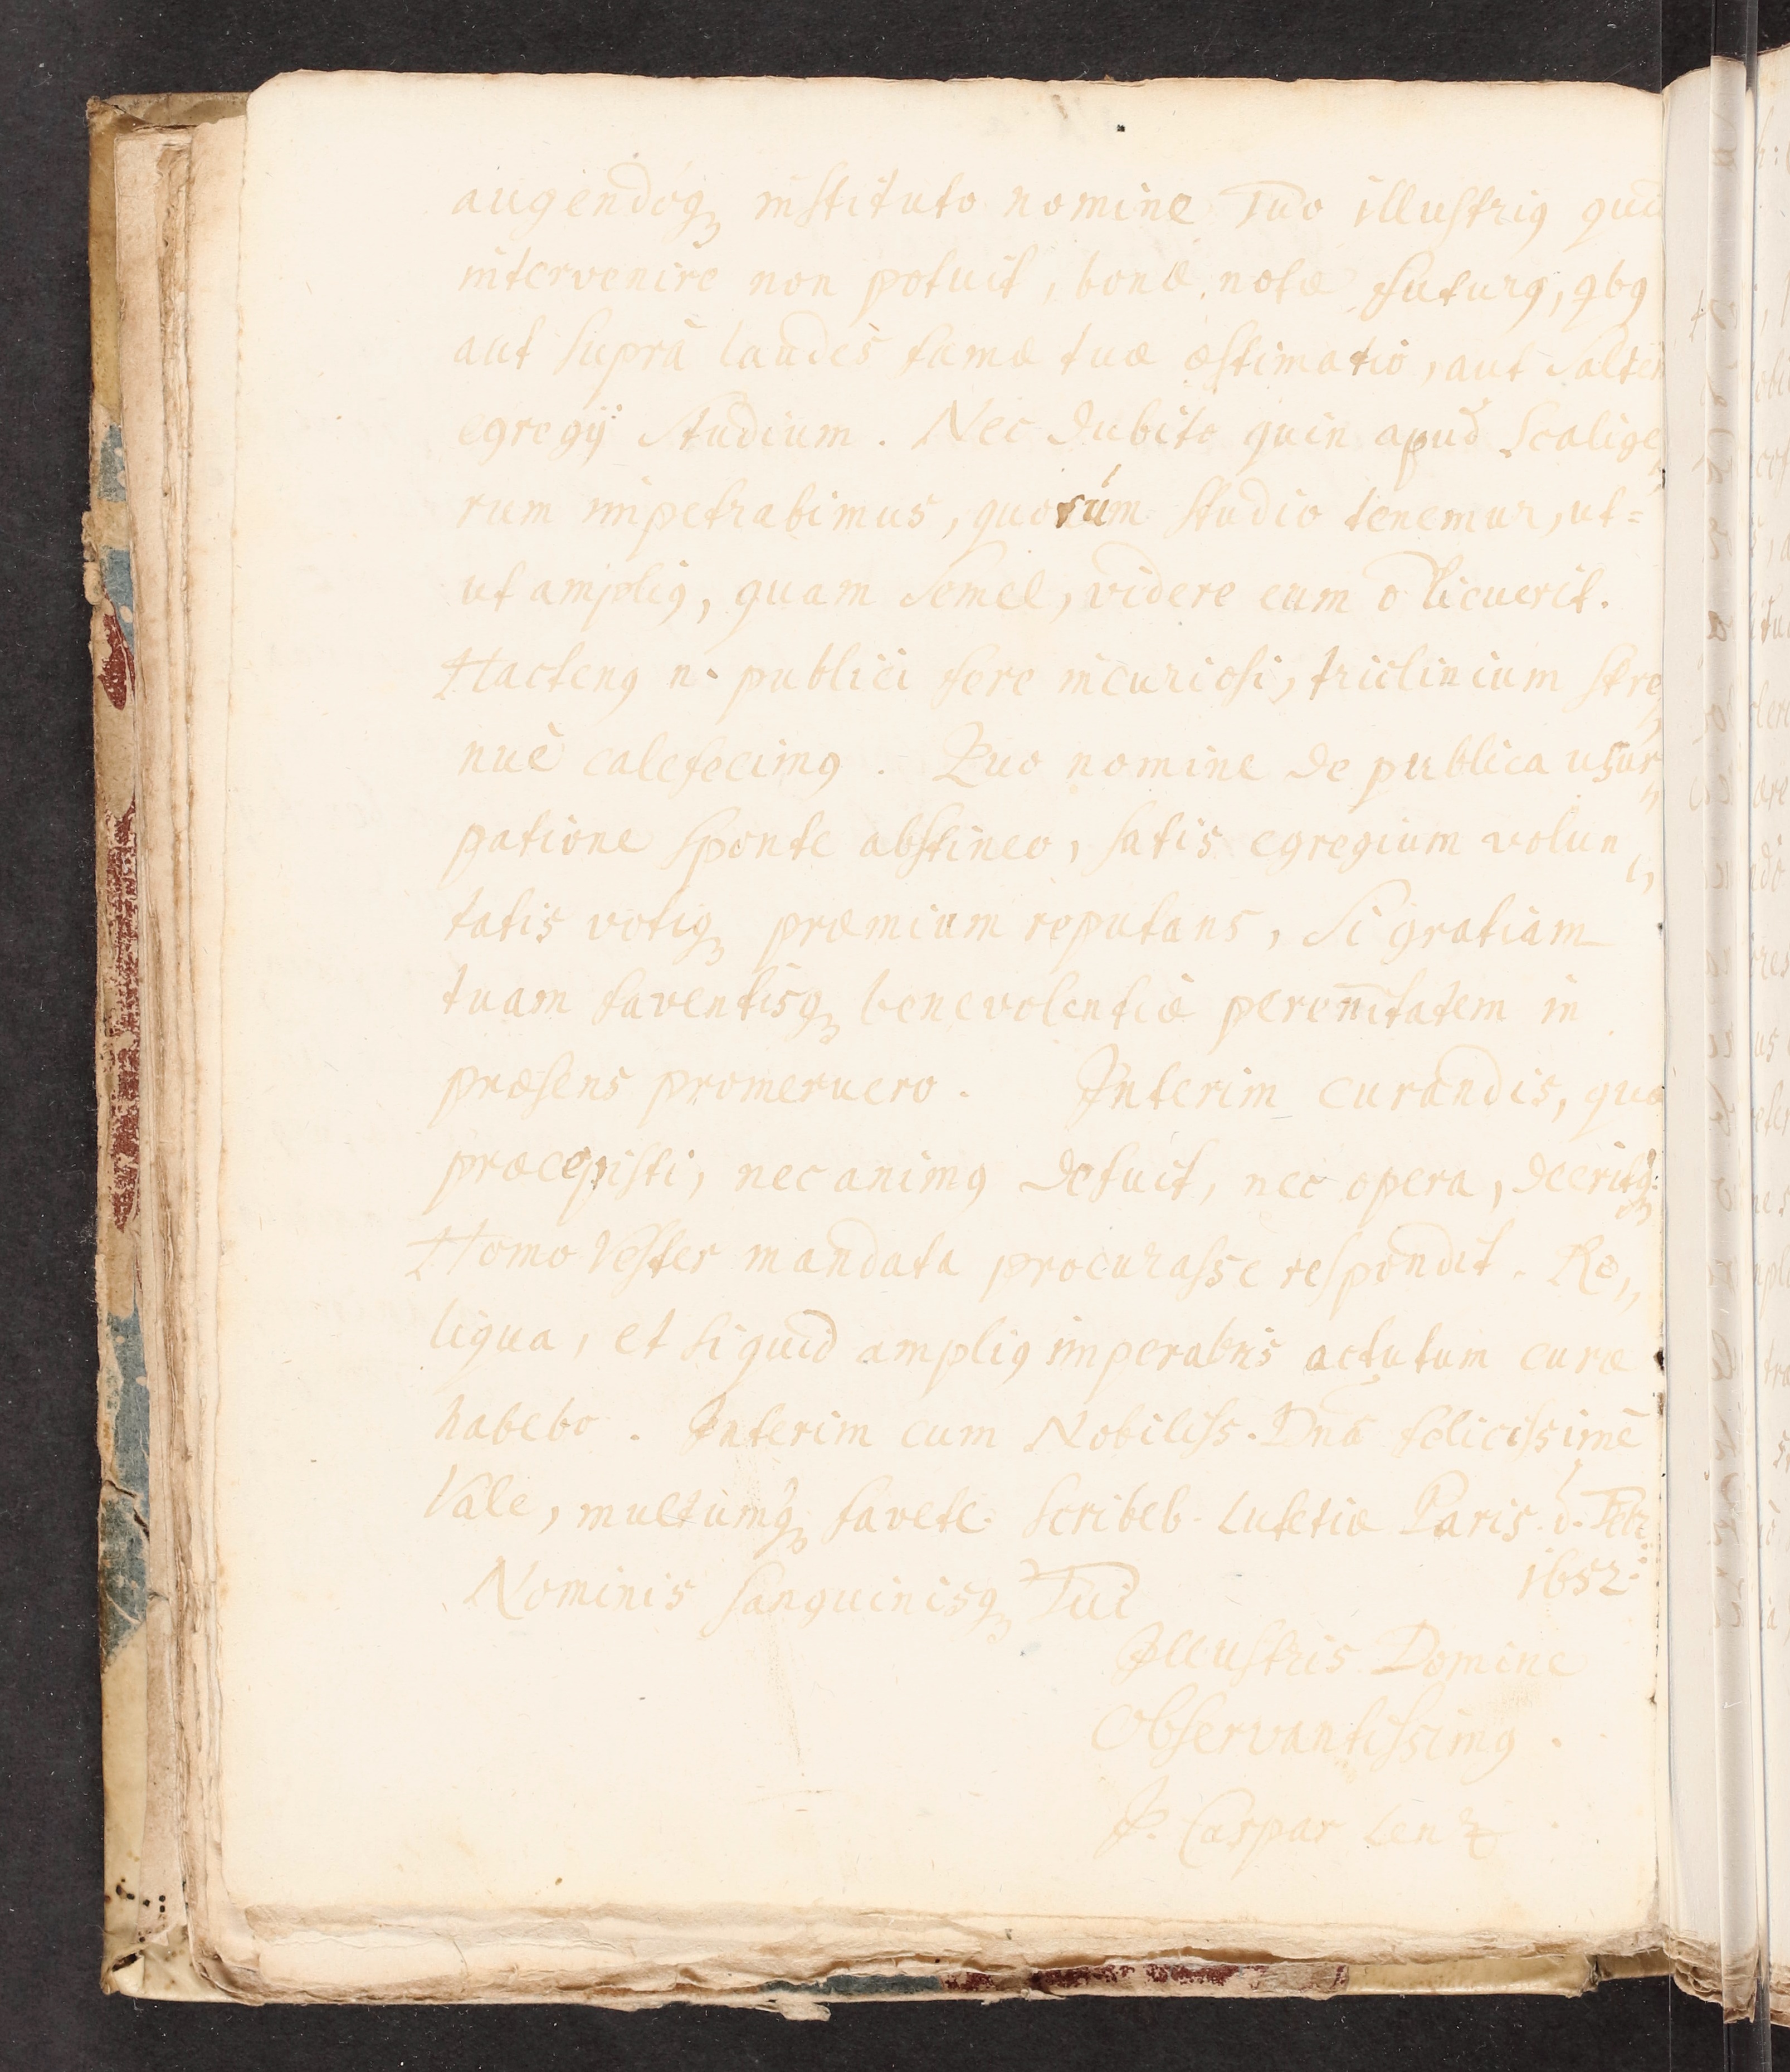 augendóq; instituto nomine Tuo illustriꝰ quā
intervenire non potuit, bonæ notæ futurꝰ, qbꝰ
aut suprà laudes famæ tuæ æstimatio, aut salte
egregÿ studium. Nec dubito quin apud Scalige
rum impetrabimus, quorúm studio tenemur, ut=
ut ampliꝰ, quam semel, videre eum ō licuerit.
Hactenꝰ n. publici fere incuriosi, triclinium stre
nuè calefecimꝰ. Quo nomine de publica usur
patione sponte abstineo, satis egregium volun
tatis votiq; præmium reputans, si gratiam
tuam faventisq; benevolentiæ perennitatem in
præsens promeruero. Interim curandis, quæ
præcepisti, nec animꝰ defuit, nec opera, deeritq;
Homo Vester mandata procurasse respondit. Re,,
liqua, et siquid ampliꝰ imperabis actutum curæ
habebo. Interim cum Nobiliss. Dnā felicissimè
Vale, multumq; favete. Scribeb. Lutetiæ Paris. d. Febr.
1652.
Nominis sanguinisq; Tui
Illustris Domine
Observantissimꝰ.
J. Caspar Lentz